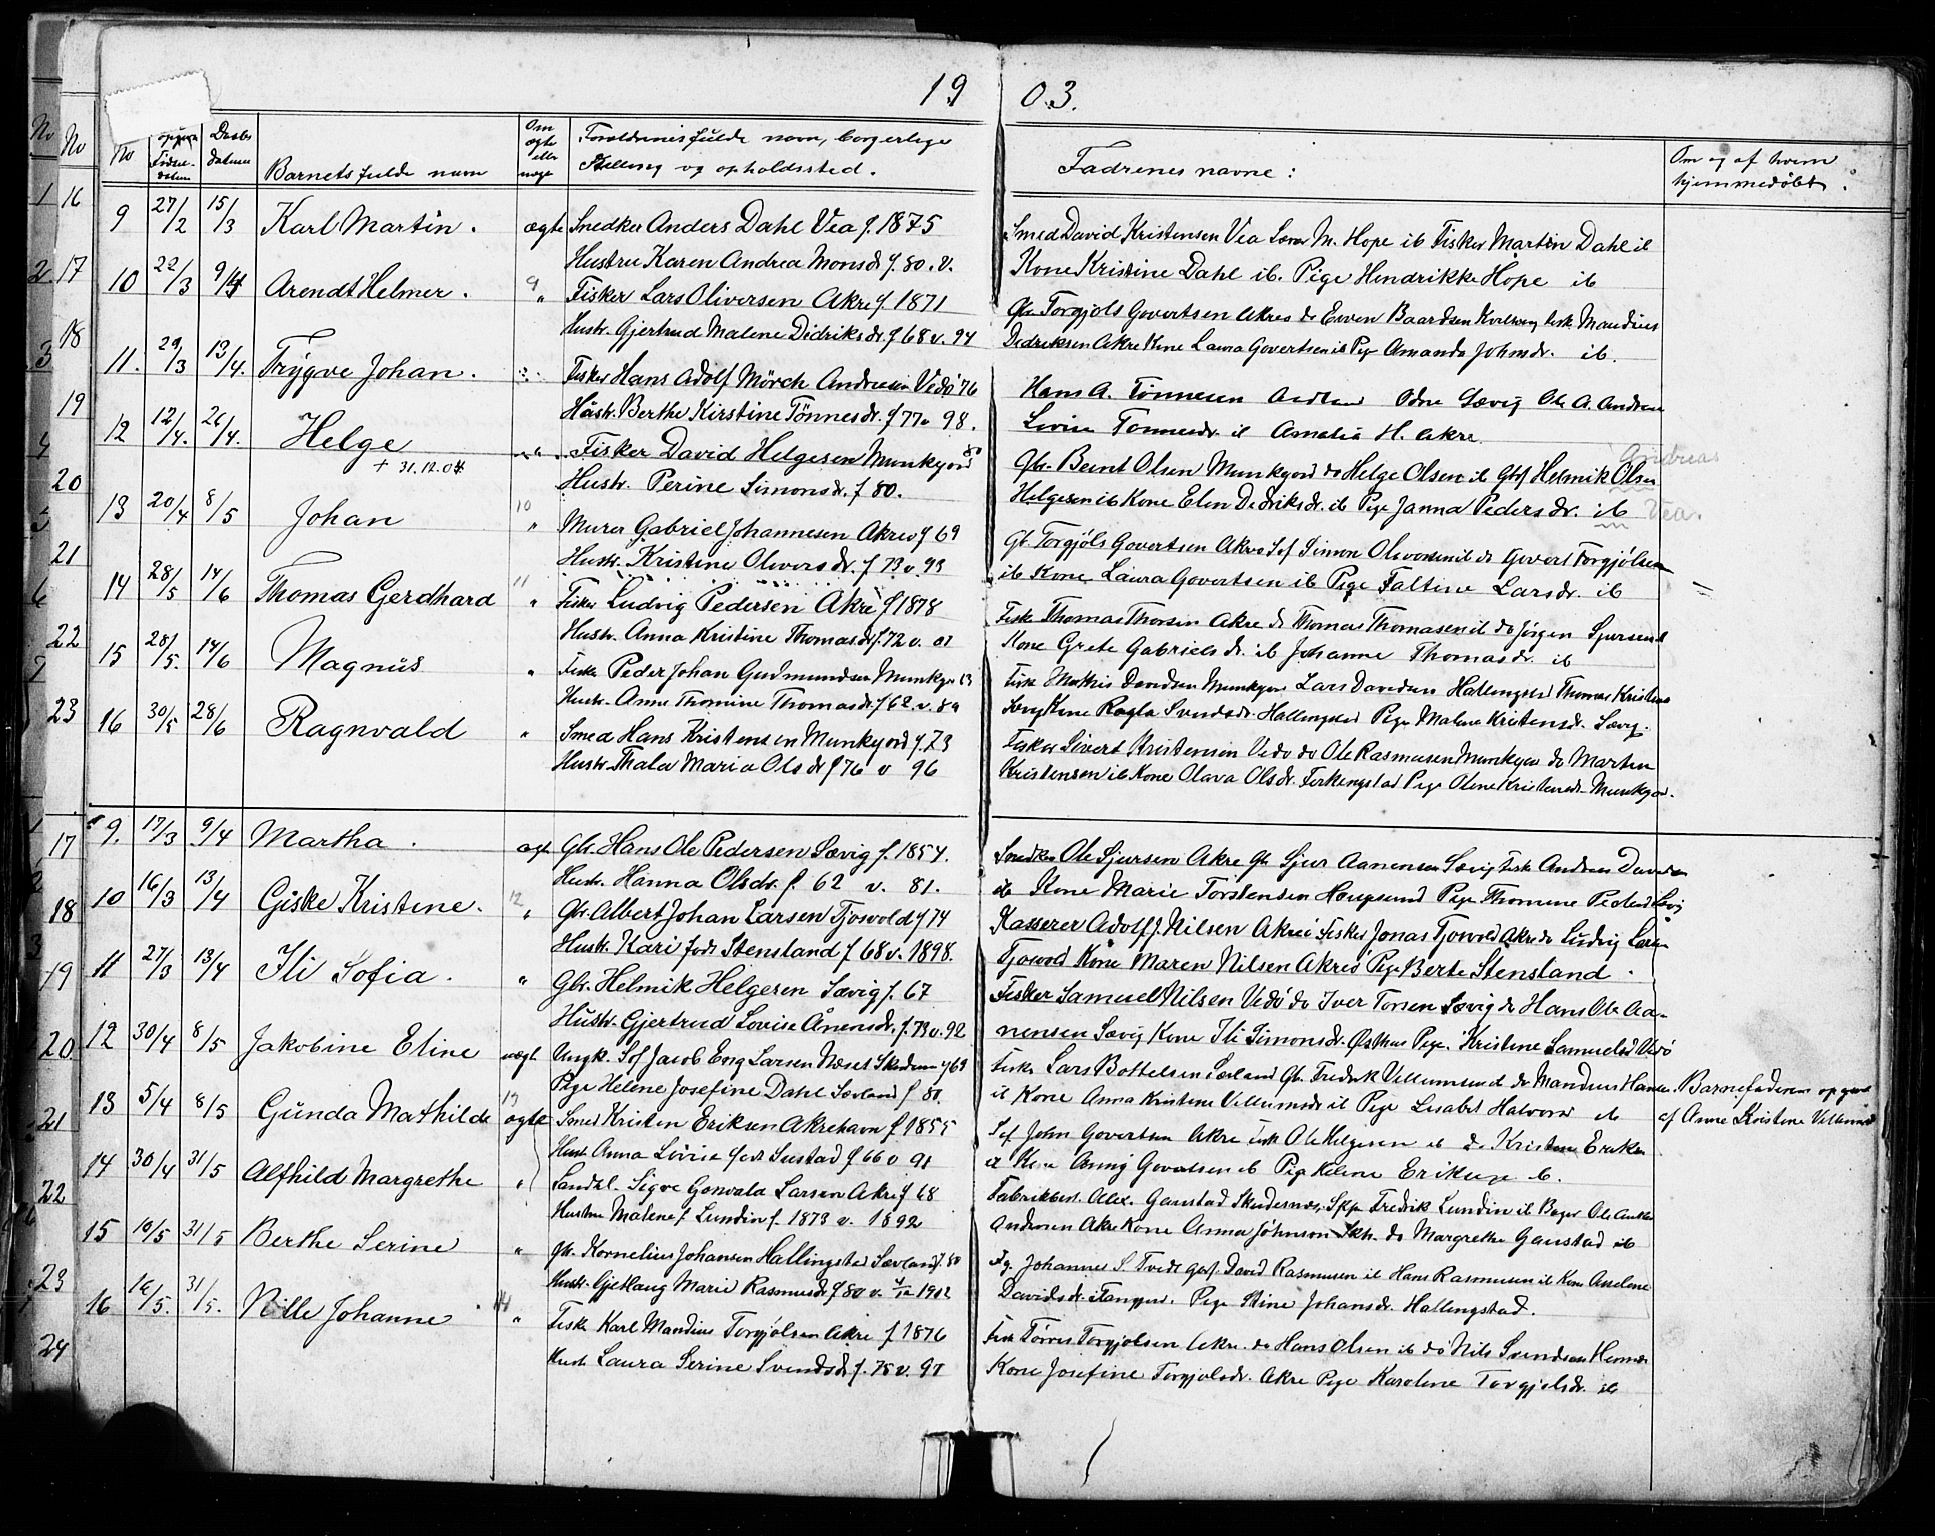 19 03.
No
Fødse-
Daabs
datum
Barnets fulde navn
Om ægte eller uægte
Forældrenes fulde navn, borgerlige
Stilling og opholdssted.
Fadrenes navne:
Om og af hvem
hjemmedøbt.
9 27/2 15/3 Karl Martin. ægte Snedker Anders Dahl Vea f. 1875
Hustru Karen Andrea Monsdr f. 80. v.
Smed David Kristensen Vea M. Hope ib Fisker Martin Dahl ib
Kone Kristine Dahl ib. Pige Hendrikke Hope ib
10 22/3 9/4 Arendt Helmer. " Fisker Lars Oliversen Akre f. 1871
Hustr. Gjertrud Malene Didriksdr. f 68 v. 94
Gbr Torgjøls Govertsen Akre do Even Baardsen Mandius
Dedriksen Akre Kone Laura Govertsen ib Pige Amanda Johnsdr. ib.
11. 29/3 13/4. Trygve Johan. " Fisker Hans Adolf Mörch Andreasen Vedø 76
Hustr. Berthe Kirstine Tønnesdr. f 77 v 98.
Hans A. Tønnesen Odne Sævig Ole A. Andreas
Tønnesdr. ib Amalia H. Akre.
12 12/4. 26/4. Helge
+ 31.12.04
" Fisker David Helgesen Munkejord 80
Hustr. Perine Simonsdr. f 80.
Gbr. Bernt Olsen Munkejord do Helge Olsen ib Gbsf Helmik Olsen
Andreas
Helgesen ib Kone Elen Dedriksdr. ib Pige Janna Pedersdr. ib
Vea.
13 20/4 8/5 Johan 10 " Murer Gabriel Johannesen Akre f 69
Hustr. Kristine Oliversdr. f 73 v. 93
Gb. Torgjøls Govertsen Akre Sef Simon Oliversen ib do Govert Torgjølsen
ib Kone Laura Govertsen ib Pige Faltine Larsdr. ib
14 28/5 14/6 Thomas Gerdhard 11 " Fisker Ludvig Pedersen Akre f 1878
Hustr. Anna Kristine Thomasdr f. 72 v. 01
Fisker Thomas Thorsen Akre do Thomas Thomasen ib do Jørgen Sjursen ib
Kone Grete Gabrielsdr. ib Johanne Thomasdr. ib
15 28/5. 14/6 Magnus " Fisker Peder Johan Gudmundsen Munkejor 63
Hustr. Anne Thomine Thomasdr f 62 v. 84
Fisk Mathis Davidsen Munkejor Lars Davidsen Hallingstad Thomas Kristens
Kone Ragla Svendsdr. Hallingstad Pige Malene Kristensdr. Sævig.
16 30/5 28/6 Ragnvald " Smed Hans Kristensen Munkejord f. 73
Hustr. Thala Maria Olsdr f 76 v 96
Fisker Sivert Kristensen Vedø do Ole Rasmusen Munkejor do Martin
Kristensen ib Kone Olava Olsdr. Ferkingstad Pige Oline Kristensdr Munkejor.
9. 17/3 9/4 Martha. ægt Gbr. Hans Ole Pedersen Sævig f. 1854.
Hustr. Hanna Olsdr. f. 62 v. 81.
Snedker Ole Sjursen Akre Gb Sjur Aanensen Sævig Fisk Andreas Davidsen
ib Kone Marie Torstensen Haugesund Pige Thomine Pedersd Sævig
10 16/3 13/4 Giske Kristine. 12 " Gbr. Albert Johan Larsen Tjosvold f 74
Hustr. Kari født Stensland f 68 v. 1898.
Kasserer Adolf J. Nilsen Akre Fisker Jonas Tjosvold Akre do Ludvig Larsen
Tjosvold Kone Maren Nilsen Akre Pige Berte Stensland.
11 27/3 13/4 Ili Sofia. " Gbr. Helmik Helgesen Sævig f. 67
Hustr. Gjertrud Lovise Ånensdr. f. 73 v. 92
Fisker Samuel Nilsen Vedø do Iver Torsen Sævig do Hans Ole Aa-
nensen Sævig Kone Ili Simonsdr. Østhus Pige Kristine Samuelsd Vedø
12 30/4 8/5 Jakobine Eline uægt Ungk. Sof Jacob Larsen Næset f 69
Pige Helene Josefine Dahl Sævland f 81.
Fisk Lars Bottelsen Sævland Gb. Fredrik Villumsen ib do Mandius Hansen
ib Kone Anna Kristine Villumsdr ib Pige Lisabet Halvorsd ib
Barnefaderen opgivet
af Anne Kristine Villumsd
13 5/4 8/5 Gunda Mathilde 13 ægte Smed Kristen Eriksen Akrehavn f 1855
Hustr Anna Lovise født Sustad f 66 v 91
Sef John Govertsen Akre Fisk Ole Helgesen ib do Kristen Eriksen
ib Kone Anny Govertsen ib Pige Helene Eriksen ib.
14 30/4 31/5 Alfhild Margrethe " Landhl. Sigve Gonvala Larsen Akre f 68
Hustru Malene f Lundin f. 1873 v. 1892
Fabrikbest. Alex. Gaustad Skudesnæs, Skpp Fredrik Lundin ib Bager Ole
Andersen Akre Kone Anna Johnson Skh. do Margrethe Gaustad ib
15 10/5 31/5 Berthe Serine " Gbr. Kornelius Johansen Hallingstad Sævland f. 80
Hustr. Gjethaug Marie Rasmusdr f 80 v. 1902
Fg. Johannes S. Tvedt Gbsf. David Rasmusen ib Hans Rasmusen ib Kone Asseline
Davidsdr. Pige Stine Johansdr. Hallingstad.
16 16/5. 31/5. Nille Johanne 14 " Fisk Karl Mandius Torgjølsen Akre f 1876
Hustr Laura Serine Svendsdr f. 75 v. 97
Fisk Tørres Torgjølsen Akre do Hans Olsen ib do Nils Svendsen
Kone Josefine Torgjølsdr. Akre Pige Karoline Torgjølsdr. ib